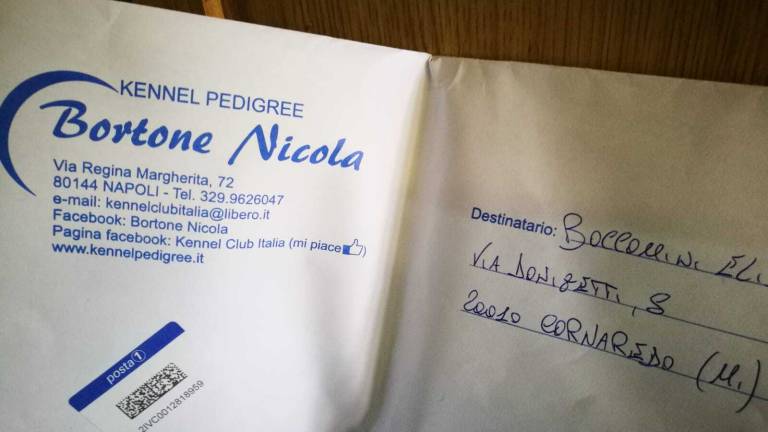 KENNEL PEDIGREE
Bortone Nicola
Via Regina Margherita, 72
80144 NAPOLI - Tel. 329.9626047
e-mail: kennelclubitalia@libero.it
Facebook: Bortone Nicola
Pagina facebook: Kennel Club Italia (mi piace)
www.kennelpedigree.it
posta1
2IVC0012818959
Destinatario: BOCCOMINI ELI
VIA DONIZETTI, 8
20010 CORNAREDO (MI)